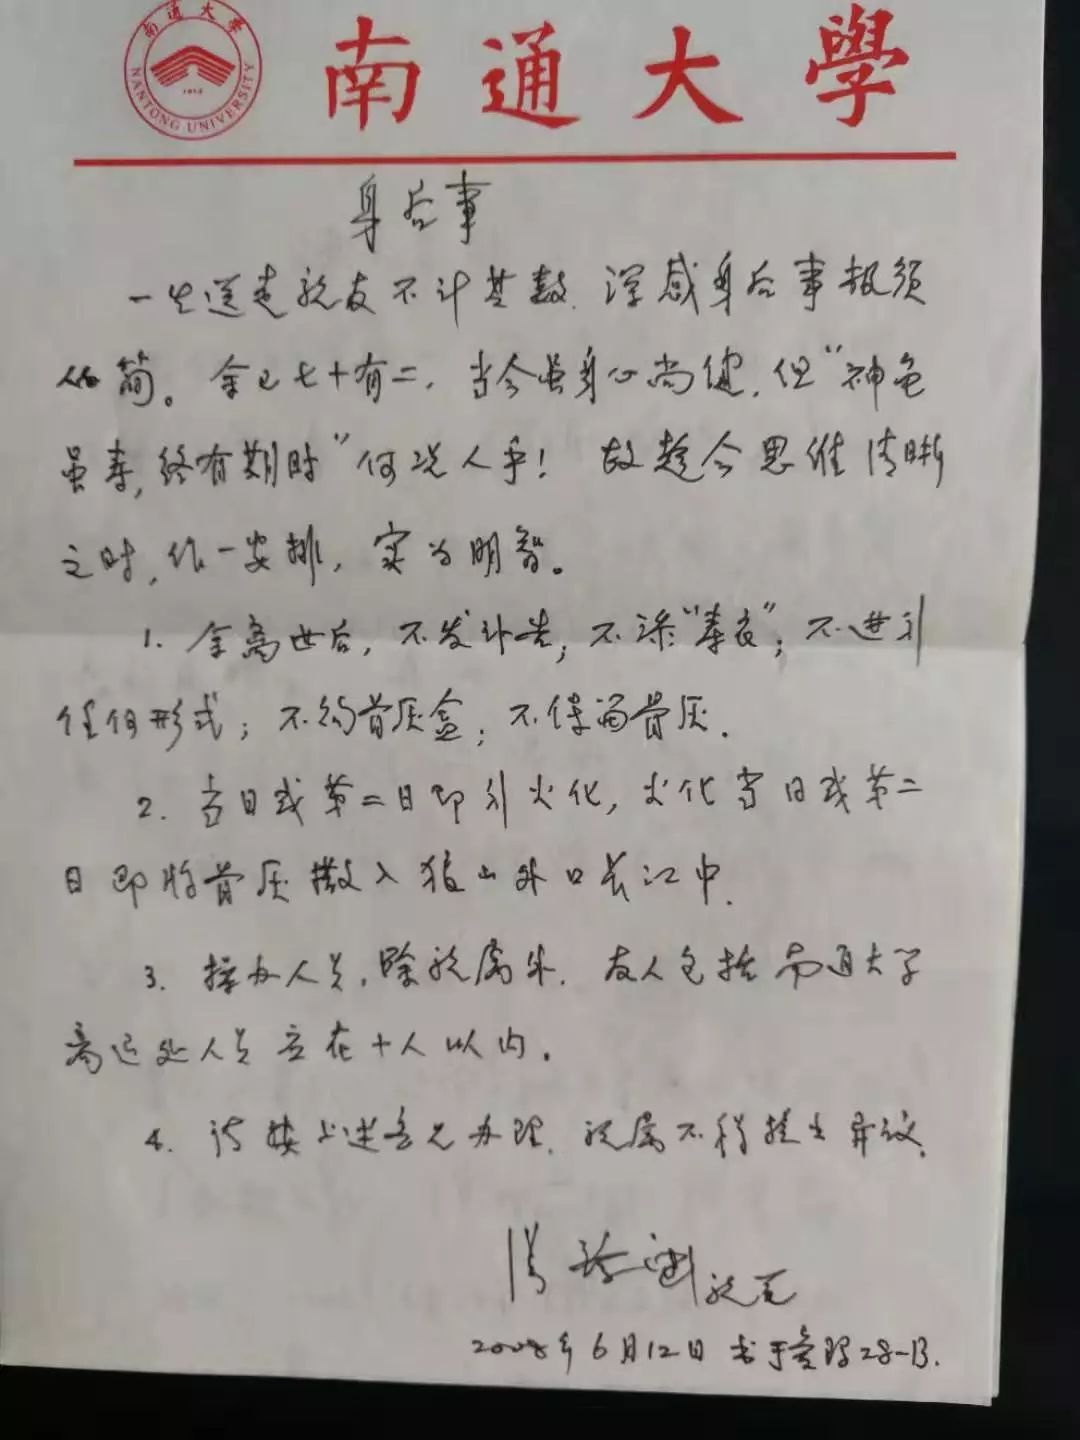 南通大学
NANTONG UNIVERSITY
1912
南通大學
身后事
一生送走亲友不计其数，深感身后事报须
从简。余已七十有二，当今虽身心尚健，但“神龟
虽寿，终有期时”何况人乎！故趁今思维清晰
之时，作一安排，实为明智。
1. 余离世后，不发讣告；不添“寿衣”；不进行
任何形式；不约骨灰盒；不保留骨灰。
2. 当日或第二日即行火化，火化当日或第二
日即将骨灰撒入狼山外口长江中.
3. 操办人员，除亲属外，友人包括南通大学
离退处人员应在十人以内。
4. 请按上述意见办理，亲属不得提出异议.
亲笔
2008年6月12日 书于 28-13.